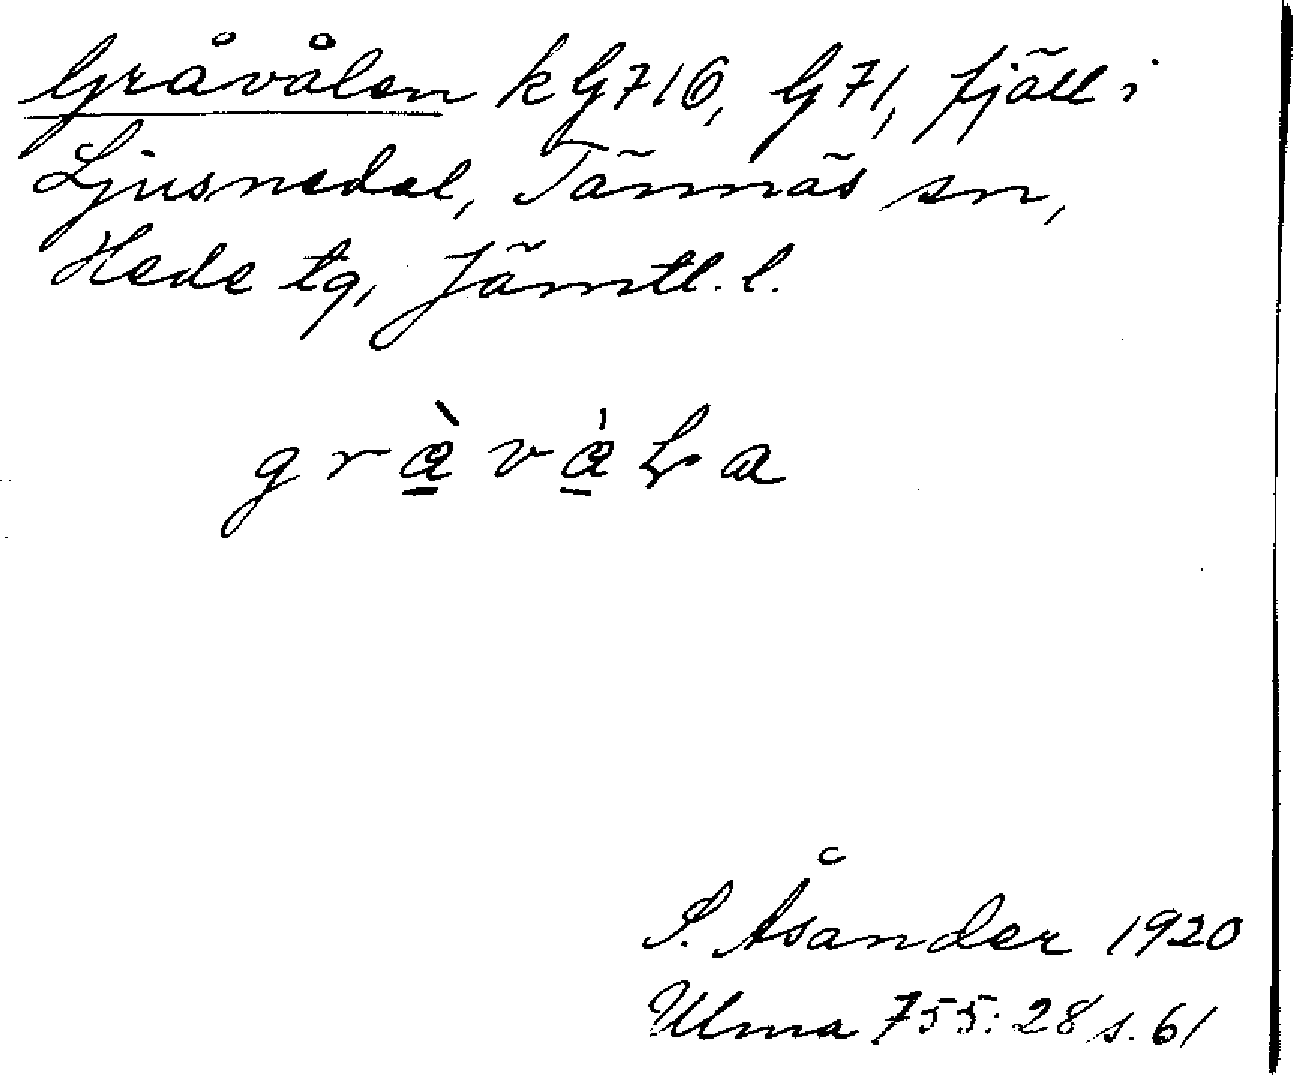 Gråvålen k G716, G71, fjäll i
Ljusnedal, Tännäs sn,
Hede tg, Jämtl. l.
S. Åsander 1920
Ulma 755:28 s. 61